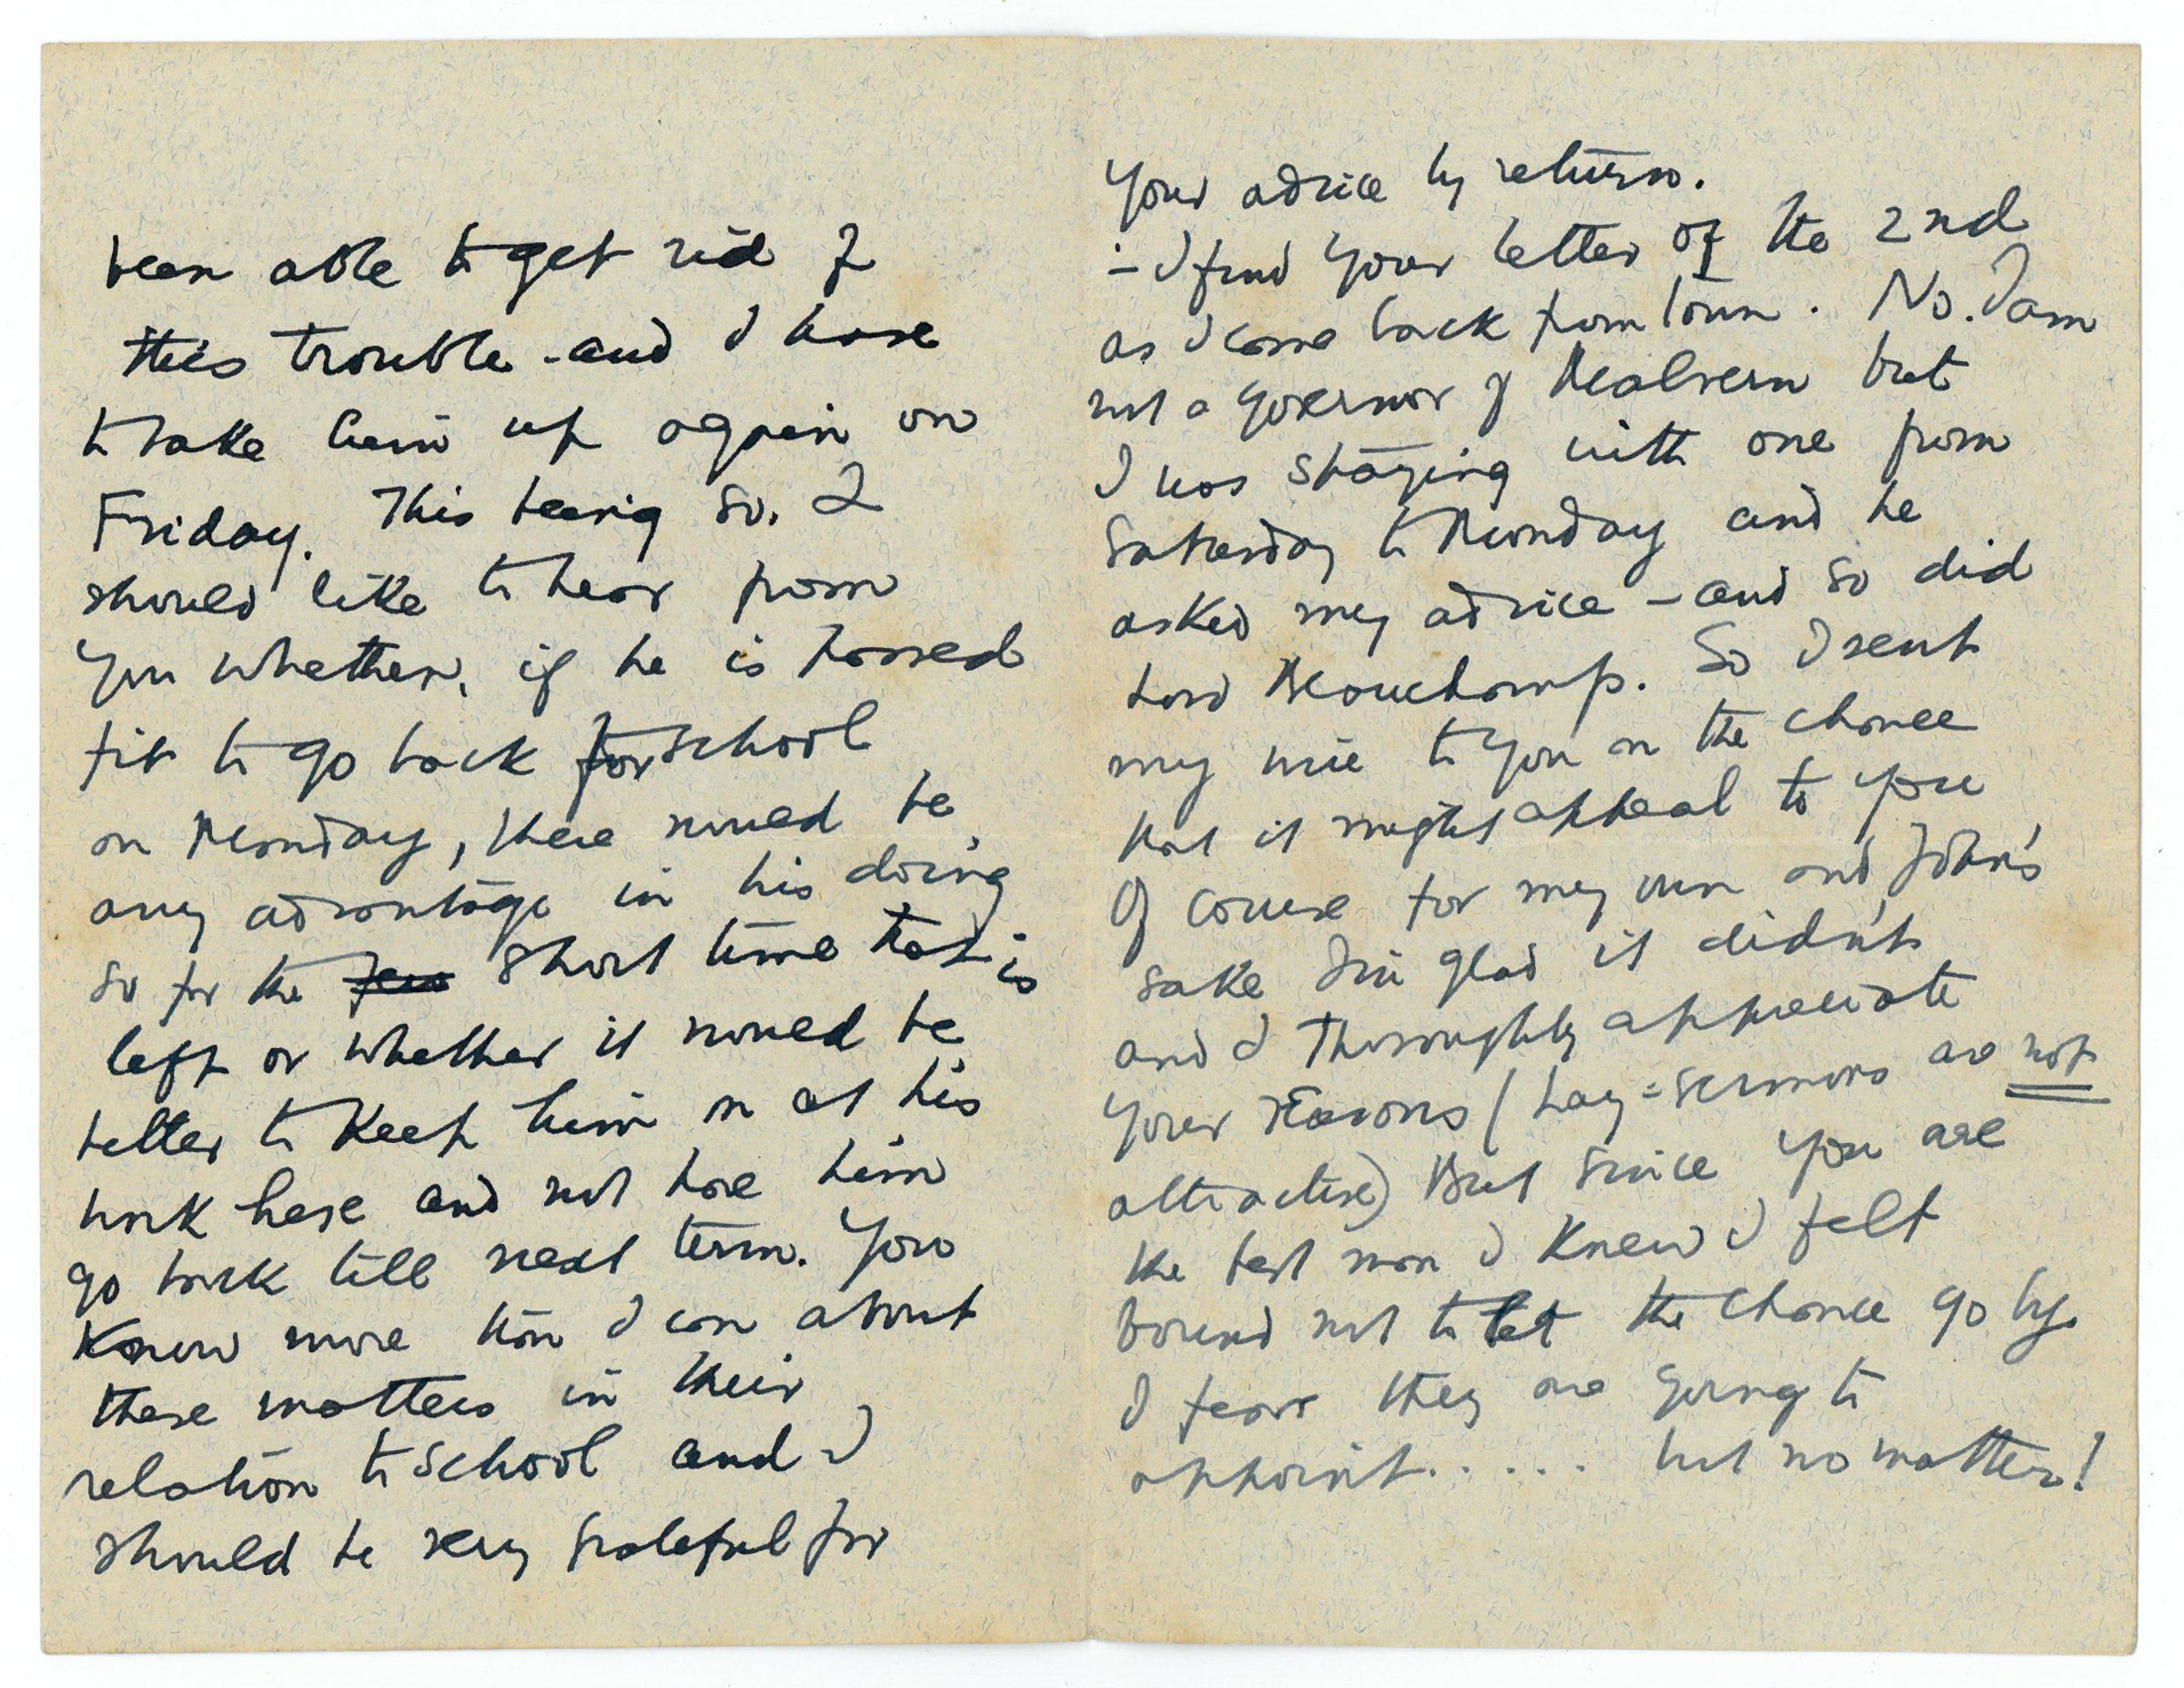 been able to get rid of
this trouble - and I have
to take him up again on
Friday. This being so, I
should like to hear from
you whether, if he is passed
fit to go back for school
on Monday, there would be
any advantage in his doing
so for the few short time that is
left or whether it would be
better to keep him on at his
work here and not have him
go back till next term. You
know more than I can about
these matters in their
relation to school and I
should be very grateful for
your advice by return.
:- I find your letter of the 2nd
as I come back from town. No. I am
not a governor of Malvern but
I was staying with one from
Saturday to Monday and he
asked my advice - and so did
Lord Beauchamp. So I sent
my wire to you on the chance
that it might appeal to you
Of course for my own and John's
sake I'm glad it didn't
and I thoroughly appreciate
your reasons (Lay=sermons are not
attractive) But since you are
the best man I knew I felt
bound not to let the chance go by.
I fear they are going to
appoint..... but no matter!